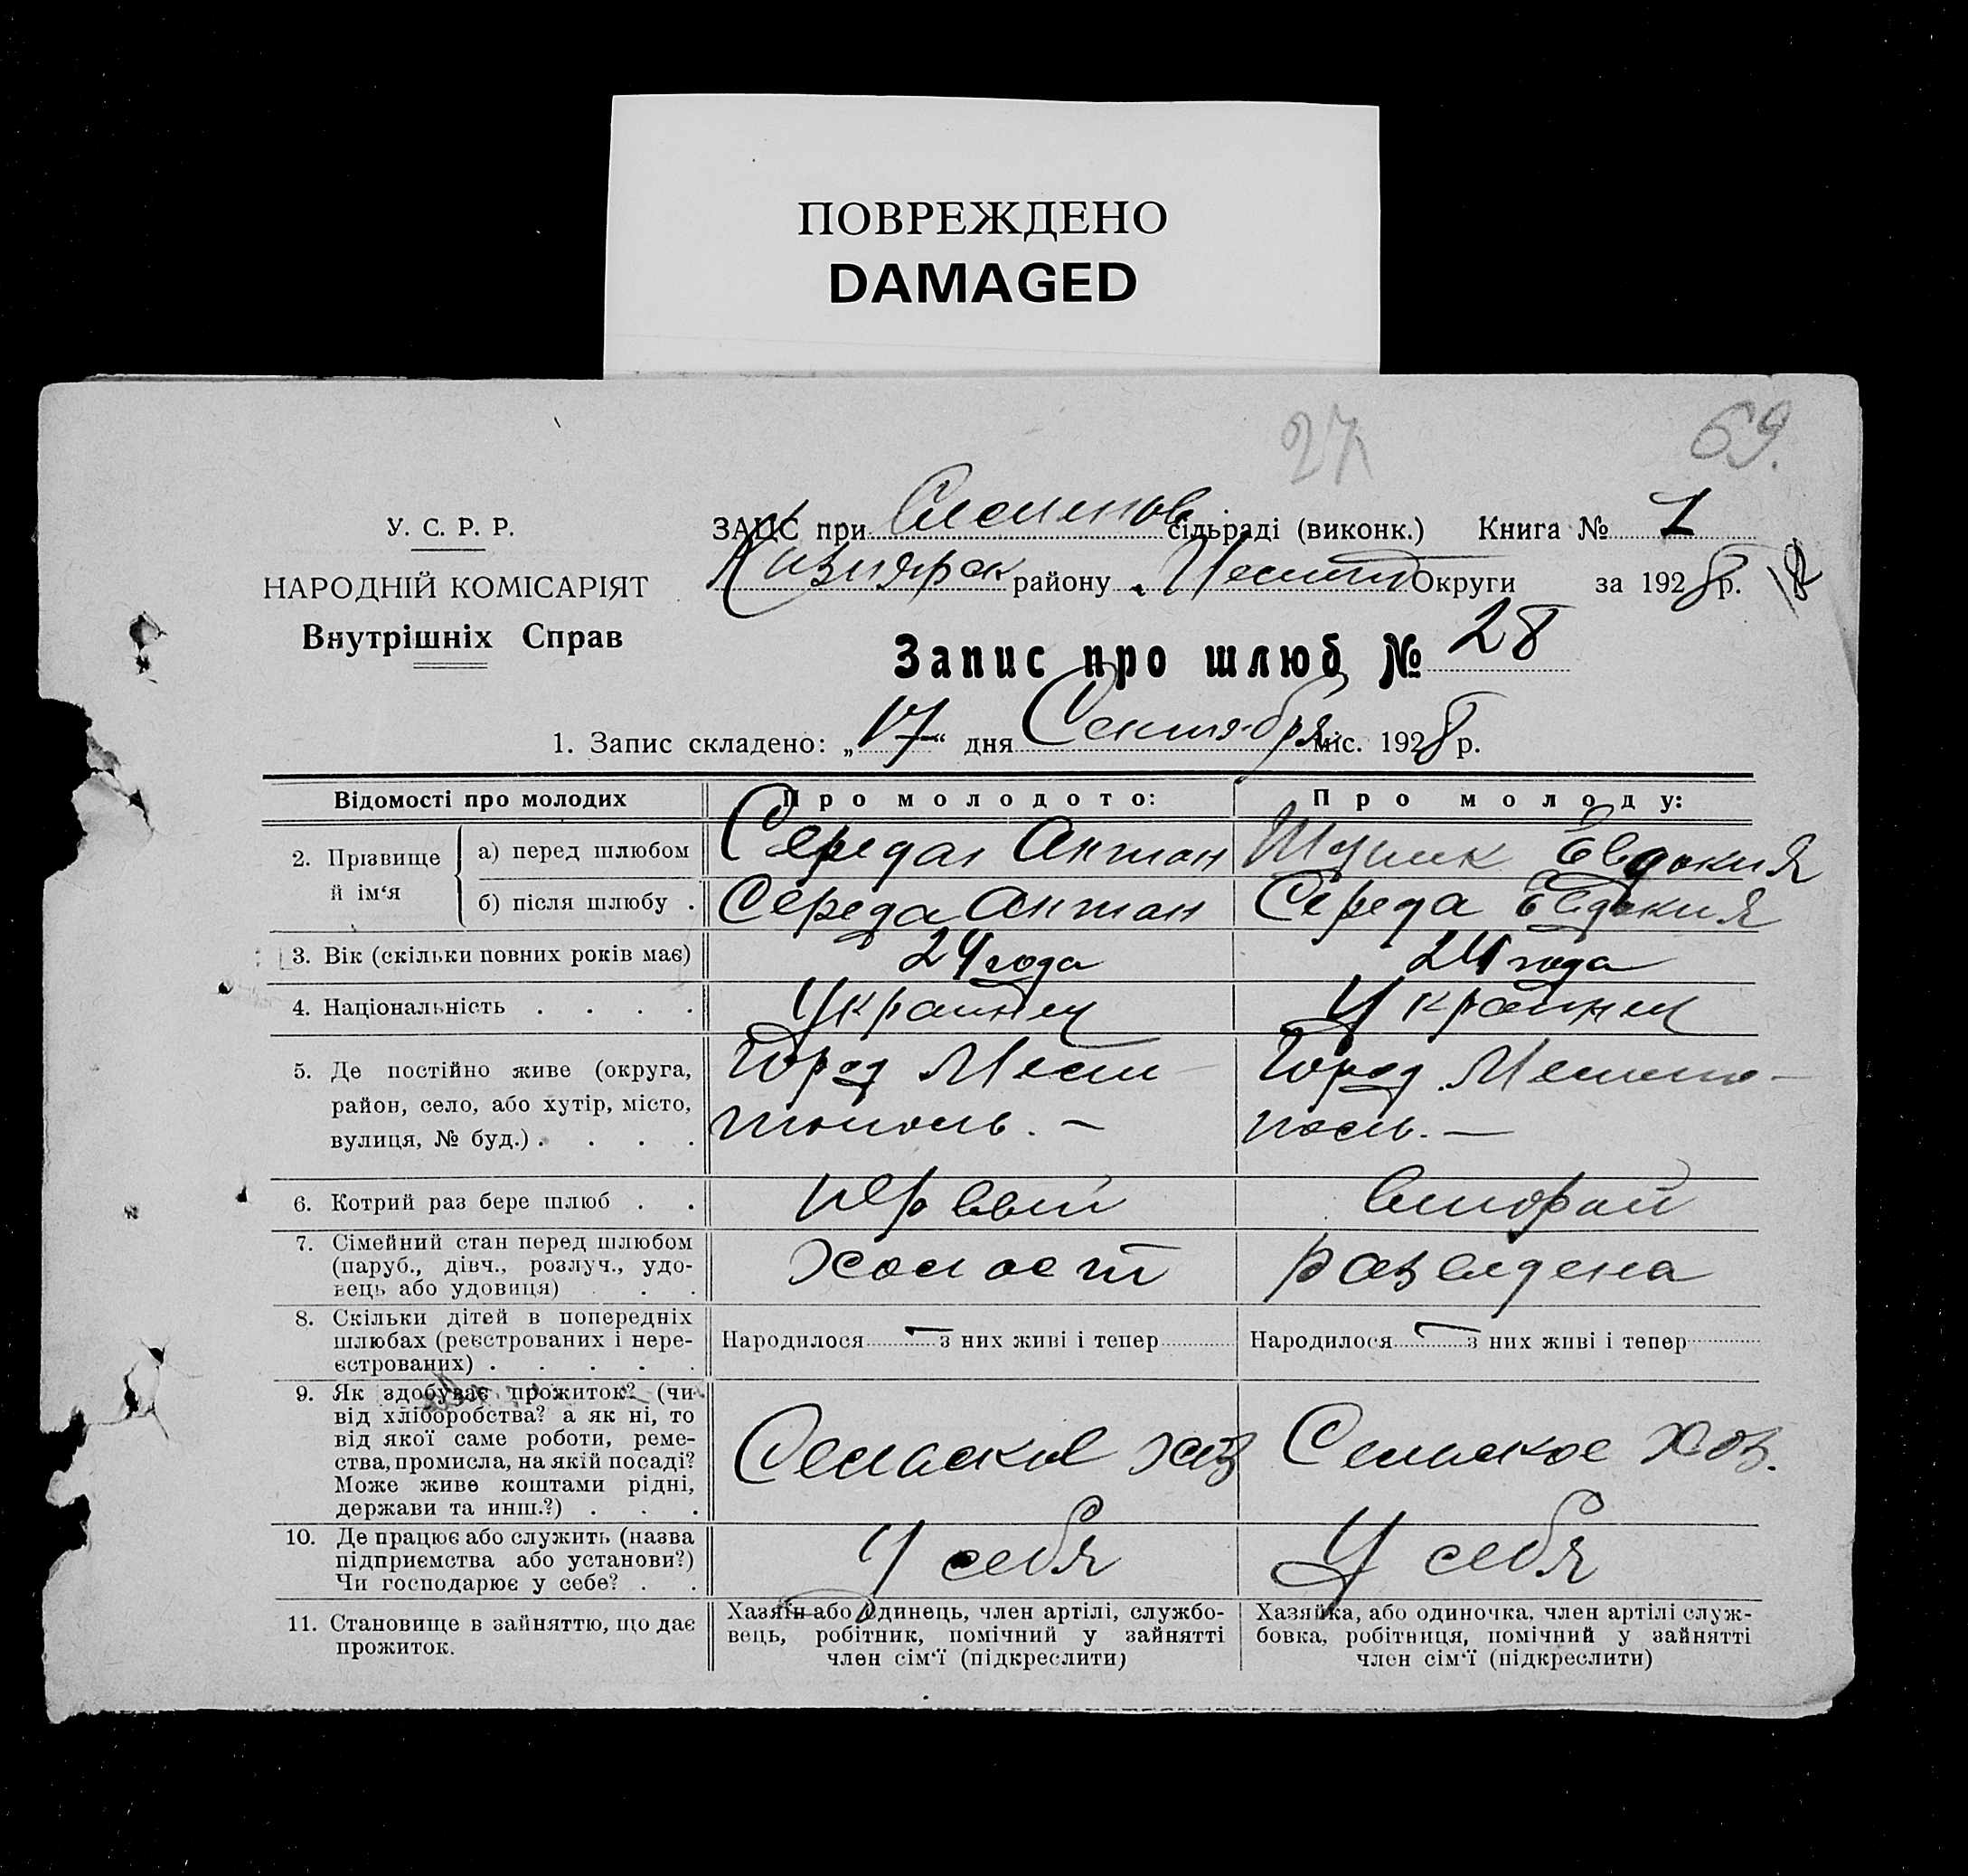 ПОВРЕЖДЕНО
DAMAGED
27
69.
У. С. Р. Р.
НАРОДНІЙ КОМІСАРІЯТ
Внутрішніх Справ
ЗАЦС при Семенов сільраді (виконк.) Книга № 1
Кизиярск району Мелит Округи за 1928 р. 18
Запис про шлюб № 28
1. Запис складено: „17“ дня Сентября міс. 1928 р.
Відомості про молодих Про молодого: Про молоду:
2. Прізвище й ім‘я
а) перед шлюбом Середа Антон Евдокия
б) після шлюбу . Середа Антон Середа Евдокия
3. Вік (скільки повних років має) 24 года 24 года
4. Національність . . . . Украинец Украинец
5. Де постійно живе (округа,
район, село, або хутір, місто,
вулиця, № буд.) . . . .
Город Мели-
тополь. –
Город Мелито-
поль. –
6. Котрий раз бере шлюб . . первый второй
7. Сімейний стан перед шлюбом
(паруб., дівч., розлуч., удо-
вець або удовиця) . . .
холост разведена
8. Скільки дітей в попередніх
шлюбах (реєстрованих і нере-
єстрованих) . . . . .
Народилося – з них живі і тепер
Народилося – з них живі і тепер
9. Як здобуває прожиток? (чи
від хліборобства? а як ні, то
від якої саме роботи, реме-
ства, промисла, на якій посаді?
Може живе коштами рідні,
держави та инш.?) . . .
Селаское хоз Селаское хоз.
10. Де працює або служить (назва
підприємства або установи?)
Чи господарює у себе? . .
У себя У себя
11. Становище в зайняттю, що дає
прожиток.
Хазяїн або одинець, член артілі, службо-
вець, робітник, помічний у зайнятті
член сім‘ї (підкреслити)
Хазяйка, або одиночка, член артілі служ-
бовка, робітниця, помічний у зайнятті
член сім‘ї (підкреслити)